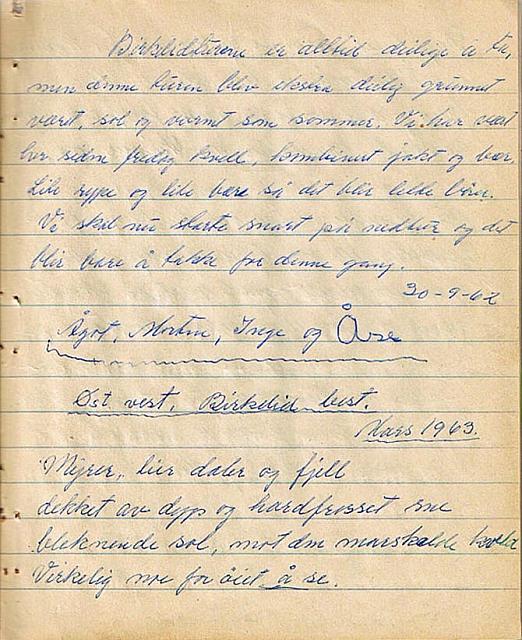 Birklidturene er alltid deilige å ta,
men denne turen blev ekstra deilig grunnet
været, sol og varmt som sommer. Vi har vært
her siden fredag kveld, kombinert jakt og bær.
Lite rype og lite bære så det blir lette bører.
Vi skal nu starte snart på nedtur og det
blir bare å takke for denne gang.
30-9-62
Ågot, Morten, Inge og Åse
Øst vest, Birkelid best.
Mars 1963.
Myrer, lier daler og fjell
dekket av dyp og hardfrosset sne
bleknende sol, mot den marskalde kveld
Virkelig noe for öiet å se.